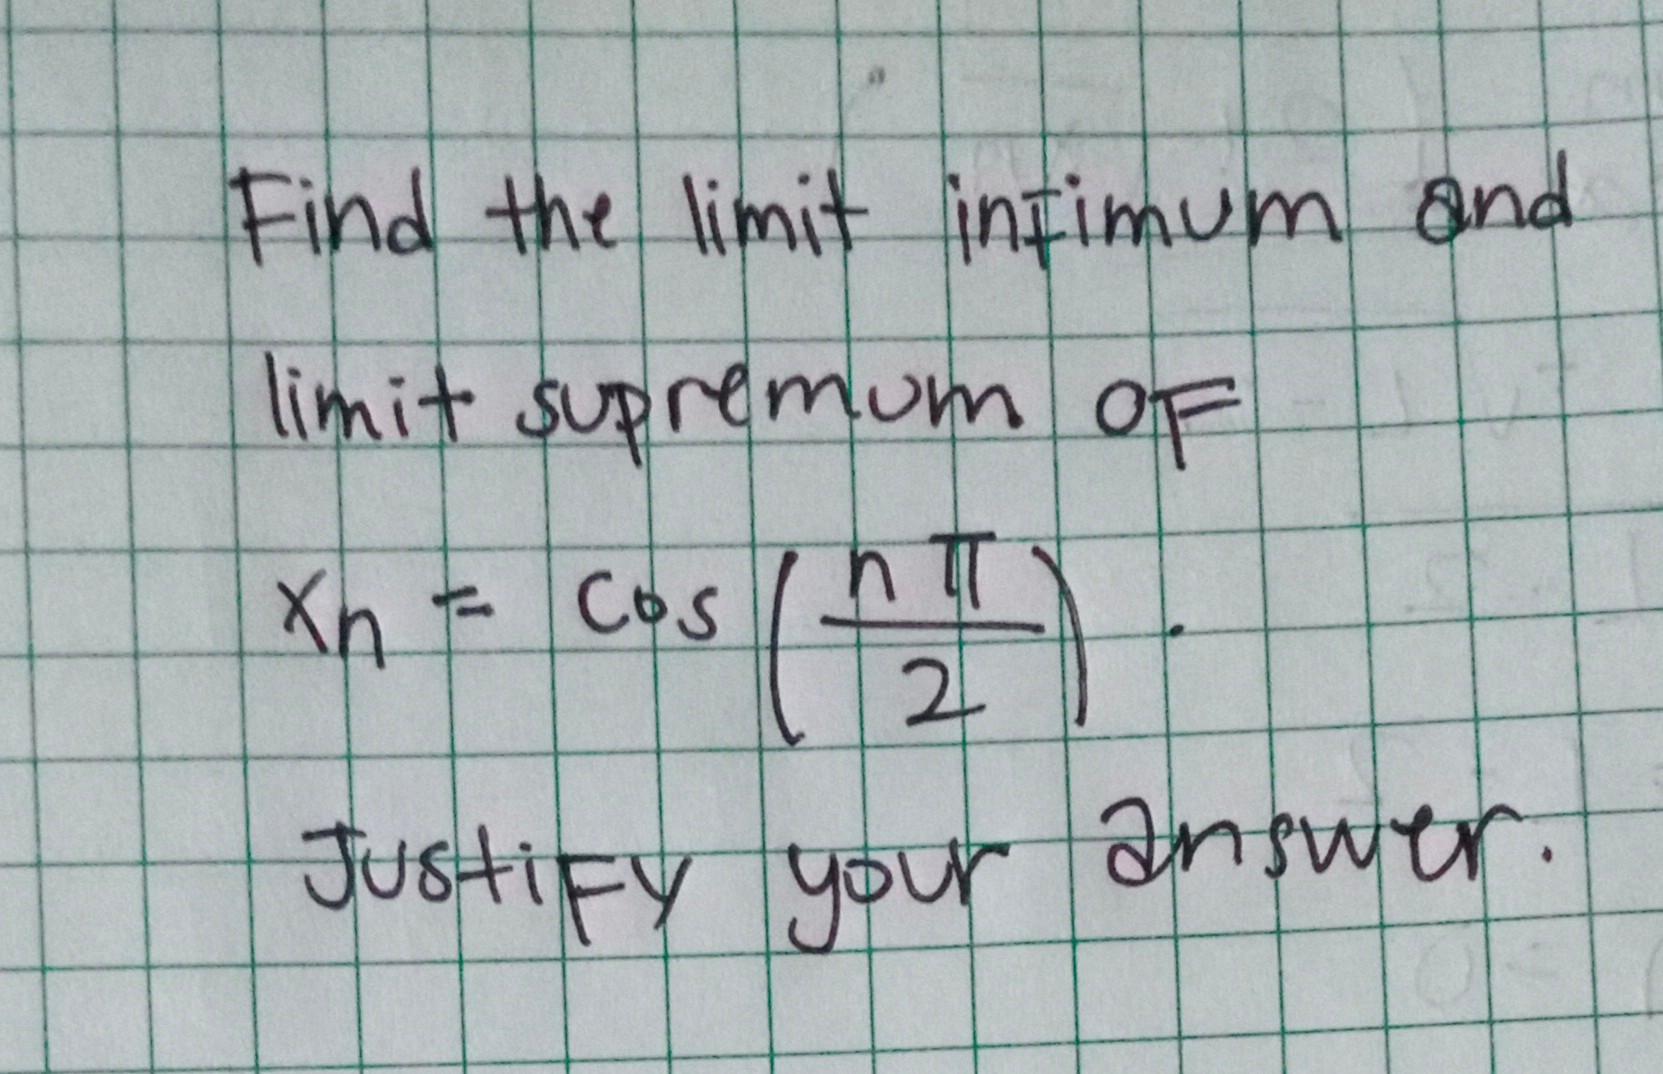 Find the limit infimum and
limit supremum of
xₙ = cos(nπ/2).
Justify your answer.